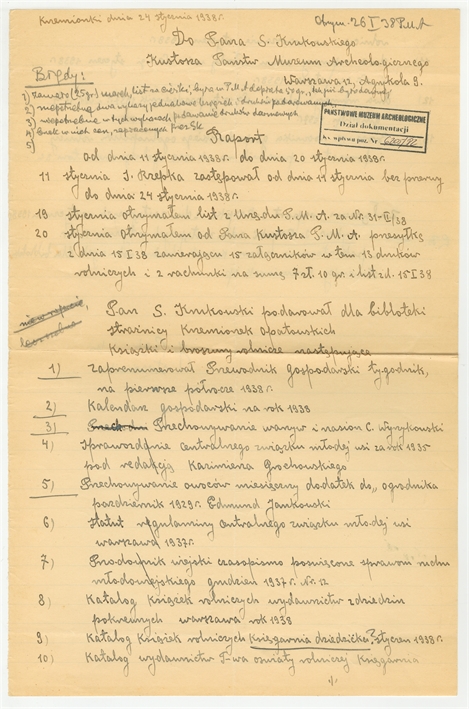 Krzemionki dnia 24 stycznia 1938 r.
Otrzym. 26 I 38 P.M.A
Do Pana S. Krukowskiego
Kustosza Państw Muzeum Archeologicznego
Warszawa 12, Agrykola 9.
Błędy:
1) zamiast (25 gr.) marek, list za ciężki, był w P.M.A
2) niepotrzebne dwa wykazy jednakowe książek i druków podarowanych
3) niepotrzebne w tych wykazach podawanie druków darowanych
4) brak w nich cen, zapłaconych przez SK
5)
PAŃSTWOWE MUZEUM ARCHEOLOGICZNE
Dział dokumentacji
Ks. wpływu poz. Nr
Raport
od dnia 11 stycznia 1938 r. do dnia 20 stycznia 1938 r.
11 stycznia J. Krepka zastępował od dnia 11 stycznia bez przerwy
do dnia 24 stycznia 1938 r.
19 stycznia otrzymałem list z Urzędu P.M.A. za Nr. 31-II/38
20 stycznia otrzymałem od Pana Kustosza P.M.A. przesyłkę
z dnia 15 I 38 zawierającą 15 załączników w tem 13 druków
rolniczych i 2 rachunki na sumę 7 zł. 10 gr. i list z d. 15 I 38
nie w raporcie,
lecz osobno
Pan S. Krukowski podarował dla bibloteki
strażnicy Krzemionek Opatowskich
książki i broszury rolnicze następujące
1) Zaprenumerował Przewodnik Gospodarski tygodnik,
na pierwsze półrocze 1938 r.
2) Kalendarz gospodarski na rok 1938
3) Przechowywanie warzyw i nasion C. Wyrzykowski
4) Sprawozdanie centralnego związku młodej wsi za rok 1935
pod redakcją Kazimiera Grochowskiego
5) Przechowywanie owoców miesięczny dodatek do „ogrodnika
październik 1929 r. Edmund Jankowski
6) statut regulaminy centralnego związku młodej wsi
warszawa 1937 r.
7) Przodownik wiejski czasopismo poświęcone sprawom ruchu
młodowiejskiego grudzień 1937 r. Nr. 12
8) Katalog książek rolniczych wydawnictw z dziedzin
pokrewnych warszawa rok 1938
9) Katalog książek rolniczych księgarnia dziedzicka? styczeń 1938 r.
10) Katalog wydawnictw T-wa oswiaty rolniczej księgarnia